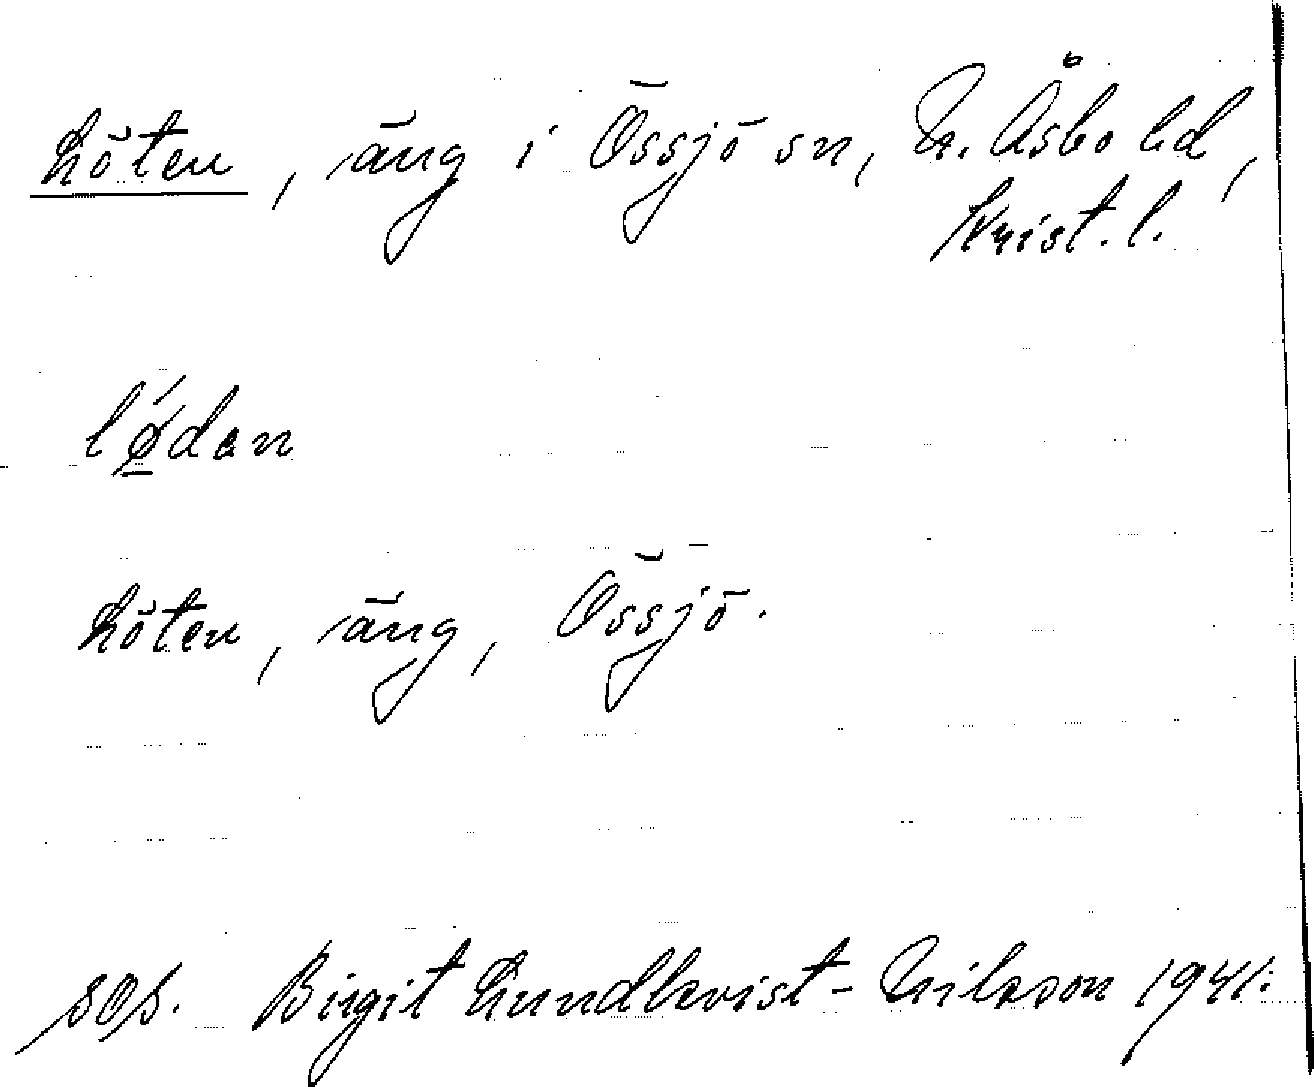 Löten, äng i Össjö sn, N. Åsbo hd,
Krist. l.
lǿdan
Löten, äng, Össjö.
Birgit Lundkvist-Nilsson 1941.